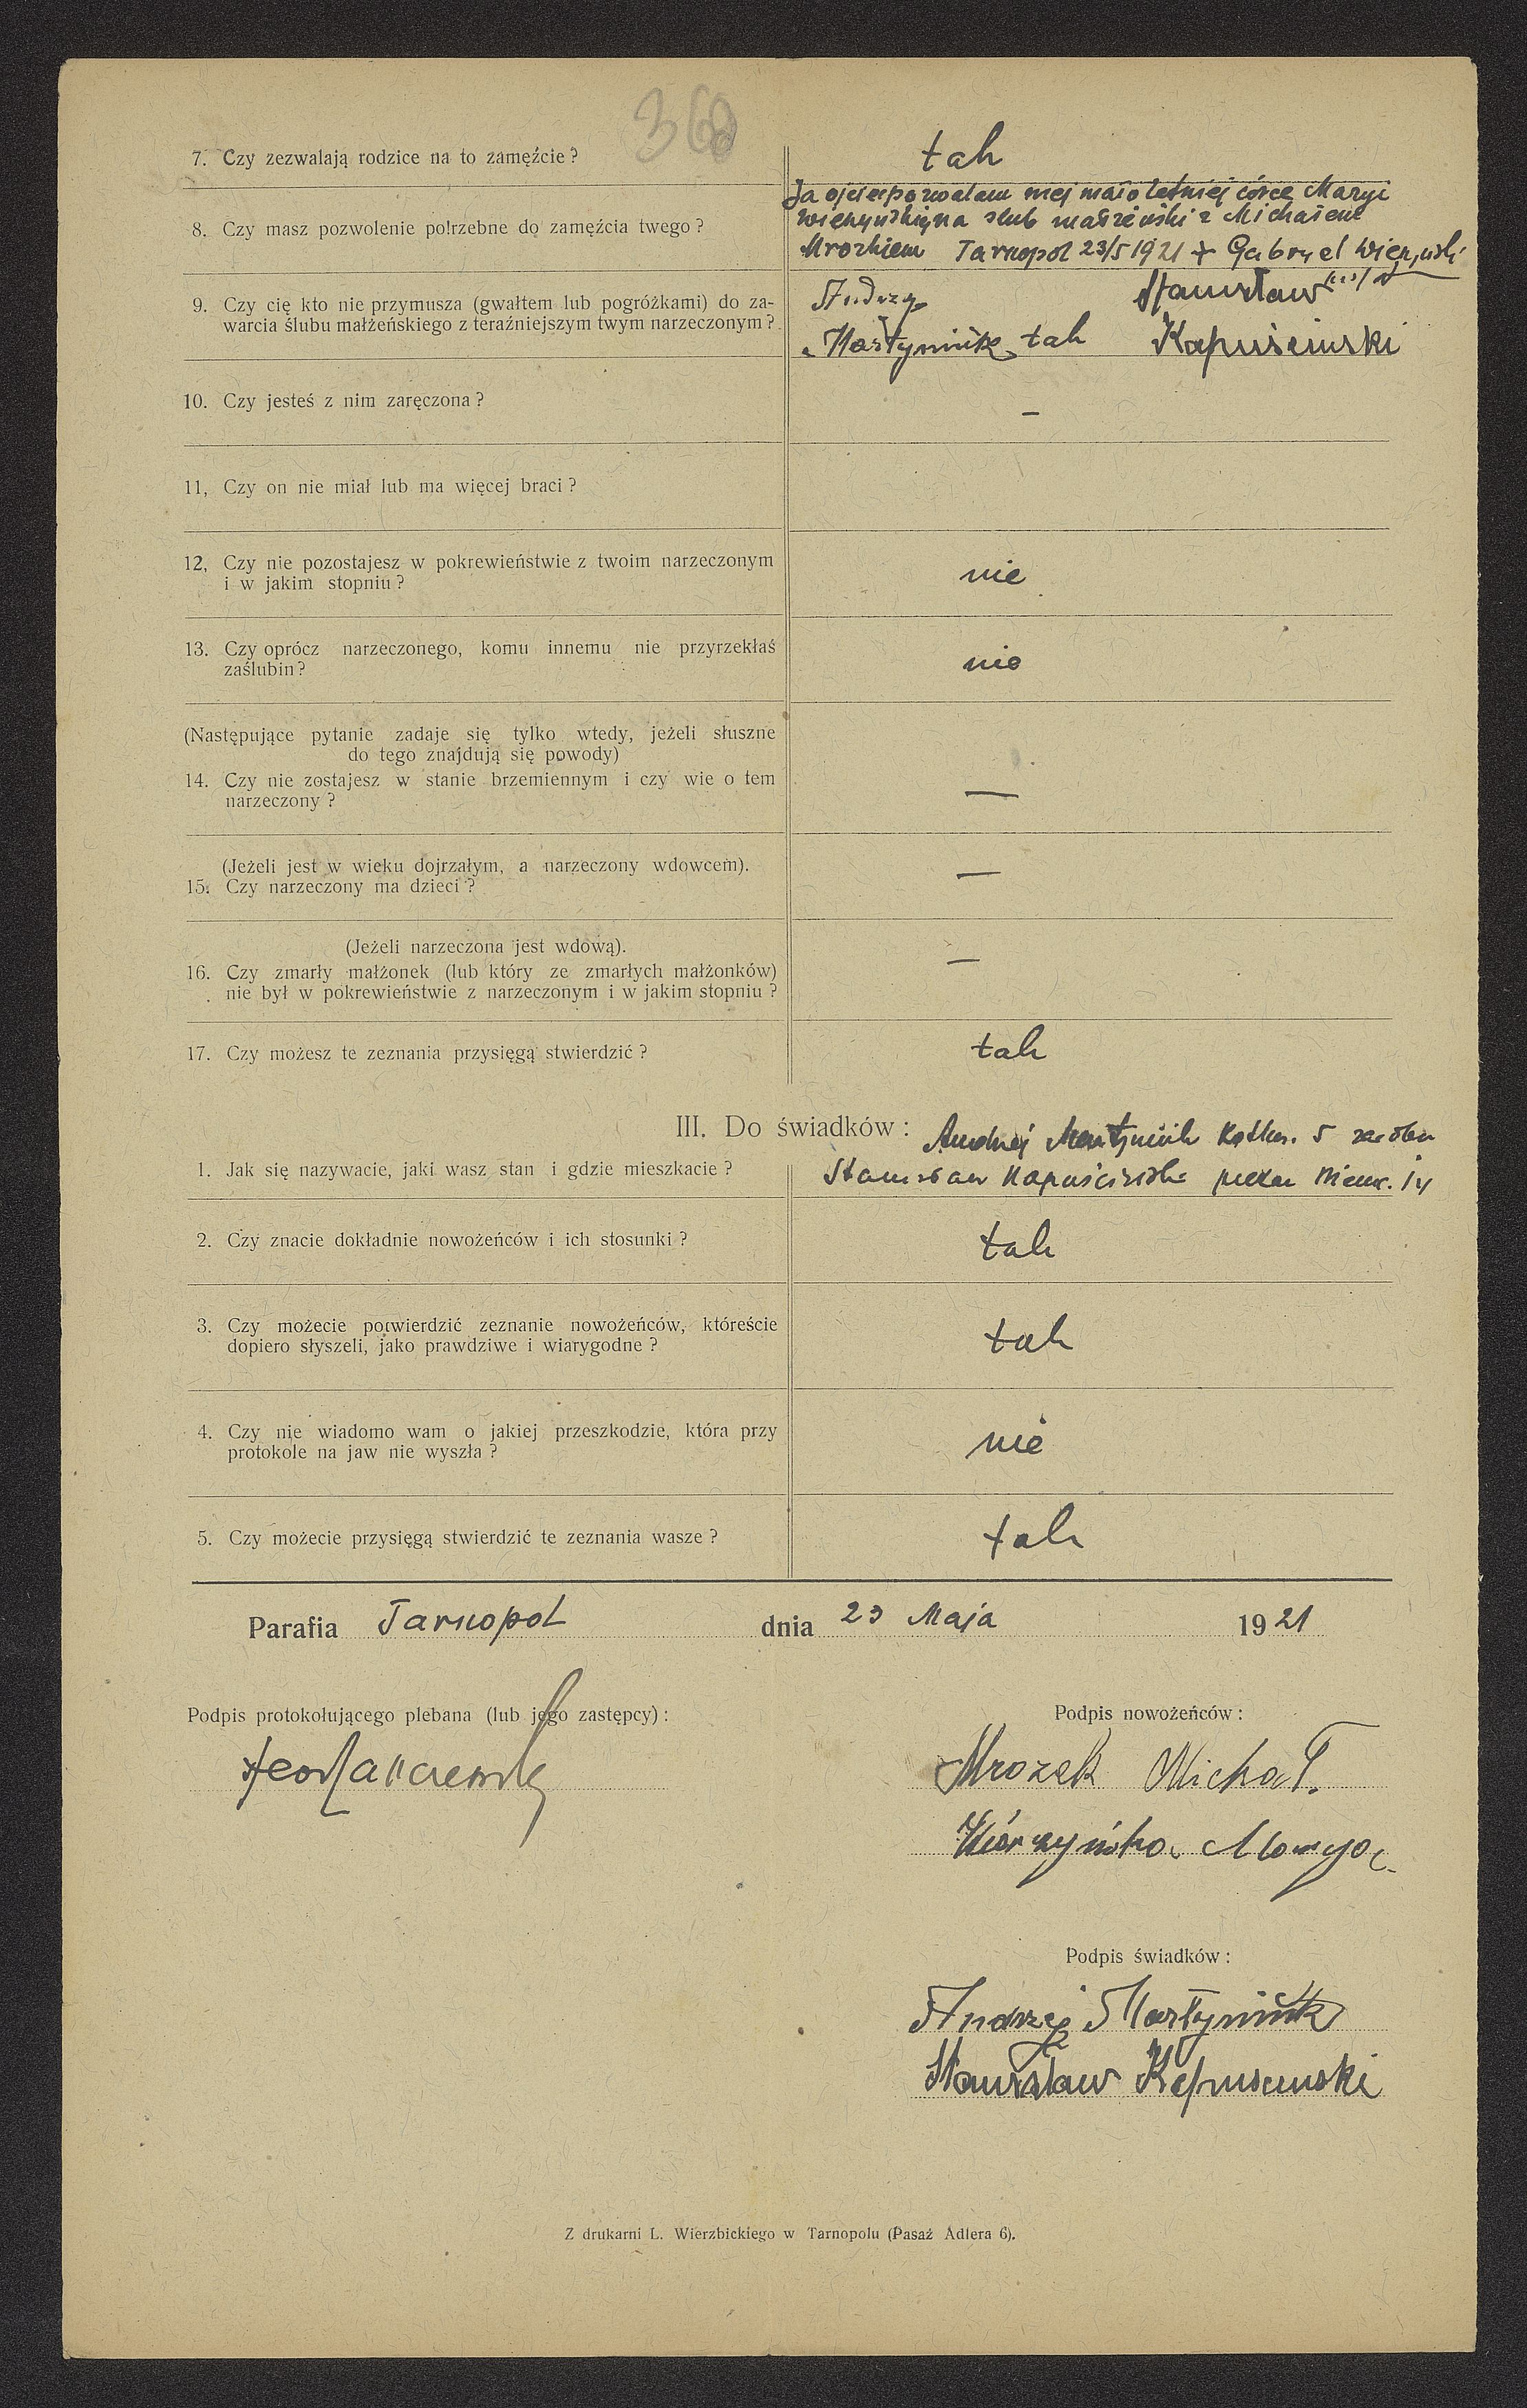 368
7. Czy zezwalają rodzice na to zamęźcie ?
tak
8. Czy masz pozwolenie potrzebne do zamęźcia twego ?
Ja ojciec pozwalam mej małoletniej córce Maryi
na ślub małżeński z Michałem
Mrozkiem Tarnopol 23/5 1921 + Gabryel
9. Czy cię kto nie przymusza (gwałtem lub pogróżkami) do za-
warcia ślubu małżeńskiego z teraźniejszym twym narzeczonym ?
Andrzej Stanisław
Martyniuk tak Kapuściński
10. Czy jesteś z nim zaręczona ?
—
11, Czy on nie miał lub ma więcej braci ?
12, Czy nie pozostajesz w pokrewieństwie z twoim narzeczonym
i w jakim stopniu ?
nie
13. Czy oprócz narzeczonego, komu innemu nie przyrzekłaś
zaślubin?
nie
(Następujące pytanie zadaje się tylko wtedy, jeżeli słuszne
do tego znajdują się powody)
14. Czy nie zostajesz w stanie brzemiennym i czy wie o tem
narzeczony ?
—
(Jeżeli jest w wieku dojrzałym, a narzeczony wdowcem).
15. Czy narzeczony ma dzieci ?
—
(Jeżeli narzeczona jest wdową).
16. Czy zmarły małżonek (lub który ze zmarłych małżonków)
nie był w pokrewieństwie z narzeczonym i w jakim stopniu ?
—
17. Czy możesz te zeznania przysięgą stwierdzić ?
tak
III. Do świadków :
Andrzej Martyniuk 5
1. Jak się nazywacie, jaki wasz stan i gdzie mieszkacie ?
Stanisław Kapuściński
2. Czy znacie dokładnie nowożeńców i ich stosunki ?
tak
3. Czy możecie potwierdzić zeznanie nowożeńców, któreście
dopiero słyszeli, jako prawdziwe i wiarygodne ?
tak
4. Czy nie wiadomo wam o jakiej przeszkodzie, która przy
protokole na jaw nie wyszła ?
nie
5. Czy możecie przysięgą stwierdzić te zeznania wasze ?
tak
Parafia Tarnopol dnia 23 Maja 1921
Podpis protokołującego plebana (lub jego zastępcy) :
Podpis nowożeńców :
Mrozek Michał.
Marya
Podpis świadków :
Andrzej Martyniuk
Stanisław Kapuściński
Z drukarni L. Wierzbickiego w Tarnopolu (Pasaż Adlera 6).